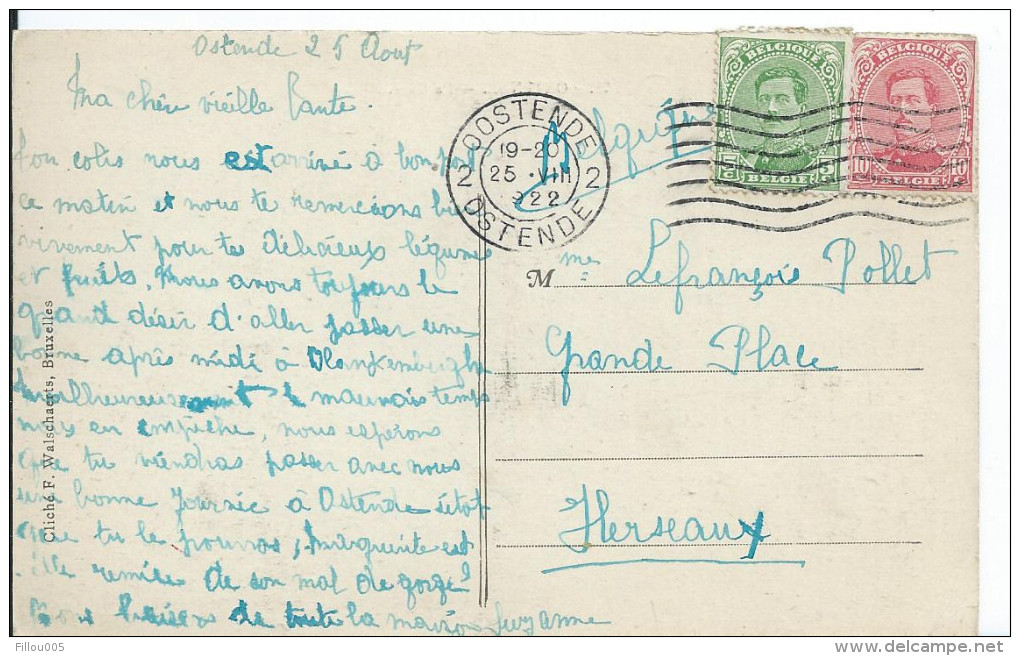 Ostende 25 Aout
Ma chère vieille Tante.
Ton colis nous est arrivé à bon port
ce matin et nous te remercions bi
vivement pour tes délicieux légume
et fruits. Nous avons toujours le
grand désir d'aller passer une
bonne après midi à Blankenberghe
malheureusement le mauvais temps
nous en empêche, nous espérons
que tu viendras passer avec nous
une bonne journée à Ostende sitot
que tu le pourras, Marguerite est
elle remise de son mal de gorge?
Bons baisers de toute la maison Suzanne
Cliché F. Walschaerts, Bruxelles
OOSTENDE
19-20
2 25 VIII 2
922
OSTENDE
Belgique
BELGIQUE
5 c 5 c
BELGIË
BELGIQUE
10 c 10 c
BELGIË
Mme Lefrançois Pollet
Grande Place
Herseaux
Fillou005
www.delcampe.net